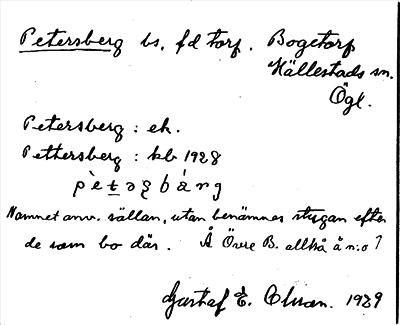 Petersberg bs. fd torp. Bogetorp
Hällestads sn.
Ögl.
Petersberg : ek.
Pettersberg : kb 1928
pètəʂbárg
Namnet anv. sällan, utan benämnes stugan efter
de som bo där. Å Övre B. alltså än:o ?
Gustaf E. 1929